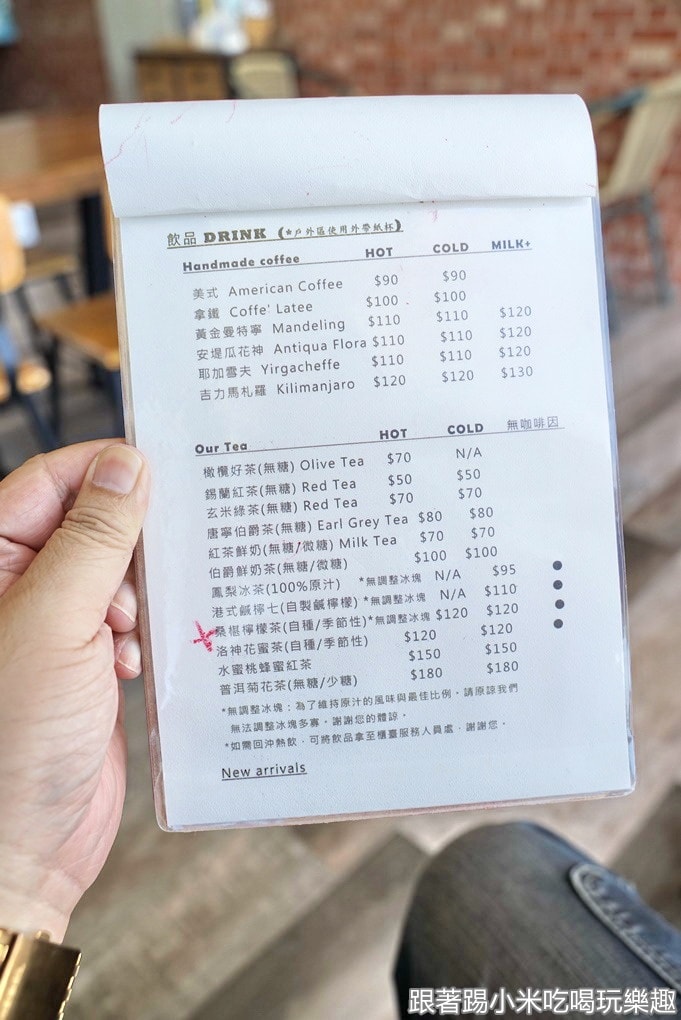 飲品 DRINK (*戶外區使用外帶紙杯)
Handmade coffee HOT COLD MILK+
美式 American Coffee $90 $90
拿鐵 Coffe' Latee $100 $100
黃金曼特寧 Mandeling $110 $110 $120
安堤瓜花神 Antiqua Flora $110 $110 $120
耶加雪夫 Yirgacheffe $110 $110 $120
吉力馬札羅 Kilimanjaro $120 $120 $130
Our Tea HOT COLD 無咖啡因
橄欖好茶(無糖) Olive Tea $70 N/A
錫蘭紅茶(無糖) Red Tea $50 $50
玄米綠茶(無糖) Red Tea $70 $70
唐寧伯爵茶(無糖) Earl Grey Tea $80 $80
紅茶鮮奶(無糖/微糖) Milk Tea $70 $70
伯爵鮮奶茶(無糖/微糖) $100 $100
鳳梨冰茶(100%原汁) *無調整冰塊 N/A $95 ●
港式鹹檸七(自製鹹檸檬) *無調整冰塊 N/A $110 ●
桑椹檸檬茶(自種/季節性)*無調整冰塊 $120 $120 ●
洛神花蜜茶(自種/季節性) $120 $120 ●
水蜜桃蜂蜜紅茶 $150 $150
普洱菊花茶(無糖/少糖) $180 $180
*無調整冰塊：為了維持原汁的風味與最佳比例，請原諒我們
無法調整冰塊多寡。謝謝您的體諒。
*如需回沖熱飲，可將飲品拿至櫃臺服務人員處，謝謝您。
New arrivals
跟著踢小米吃喝玩樂趣